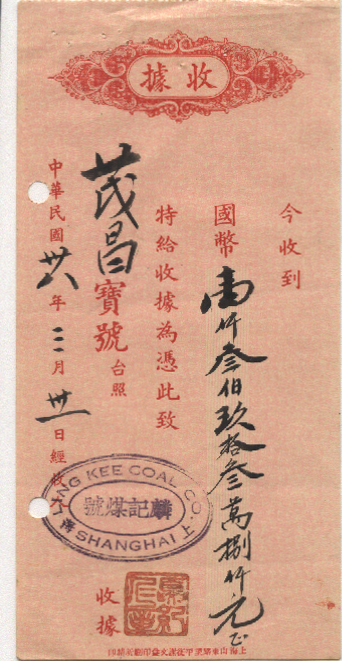 收據
今收到
國幣壹仟叁佰玖拾叁萬捌仟元正
特給收據為憑此致
茂昌寶號台照
中華民國卅六年三月卅一日經收人
NG KEE COAL CO
麟記煤號
上海 SHANGHAI
收據